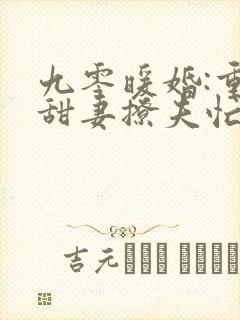 九零暖婚:重
甜妻撩夫忙
吉元